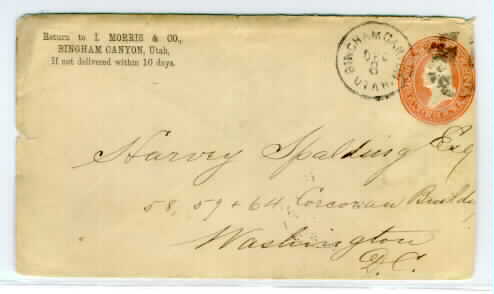 Return to I. MORRIS & CO.,
BINGHAM CANYON, Utah,
If not delivered within 10 days.
BINGHAM CANYON
DEC
8
UTAH
Harvey Spalding Esq
58, 59 + 64, Corcowan Buildg
Washington
D.C.